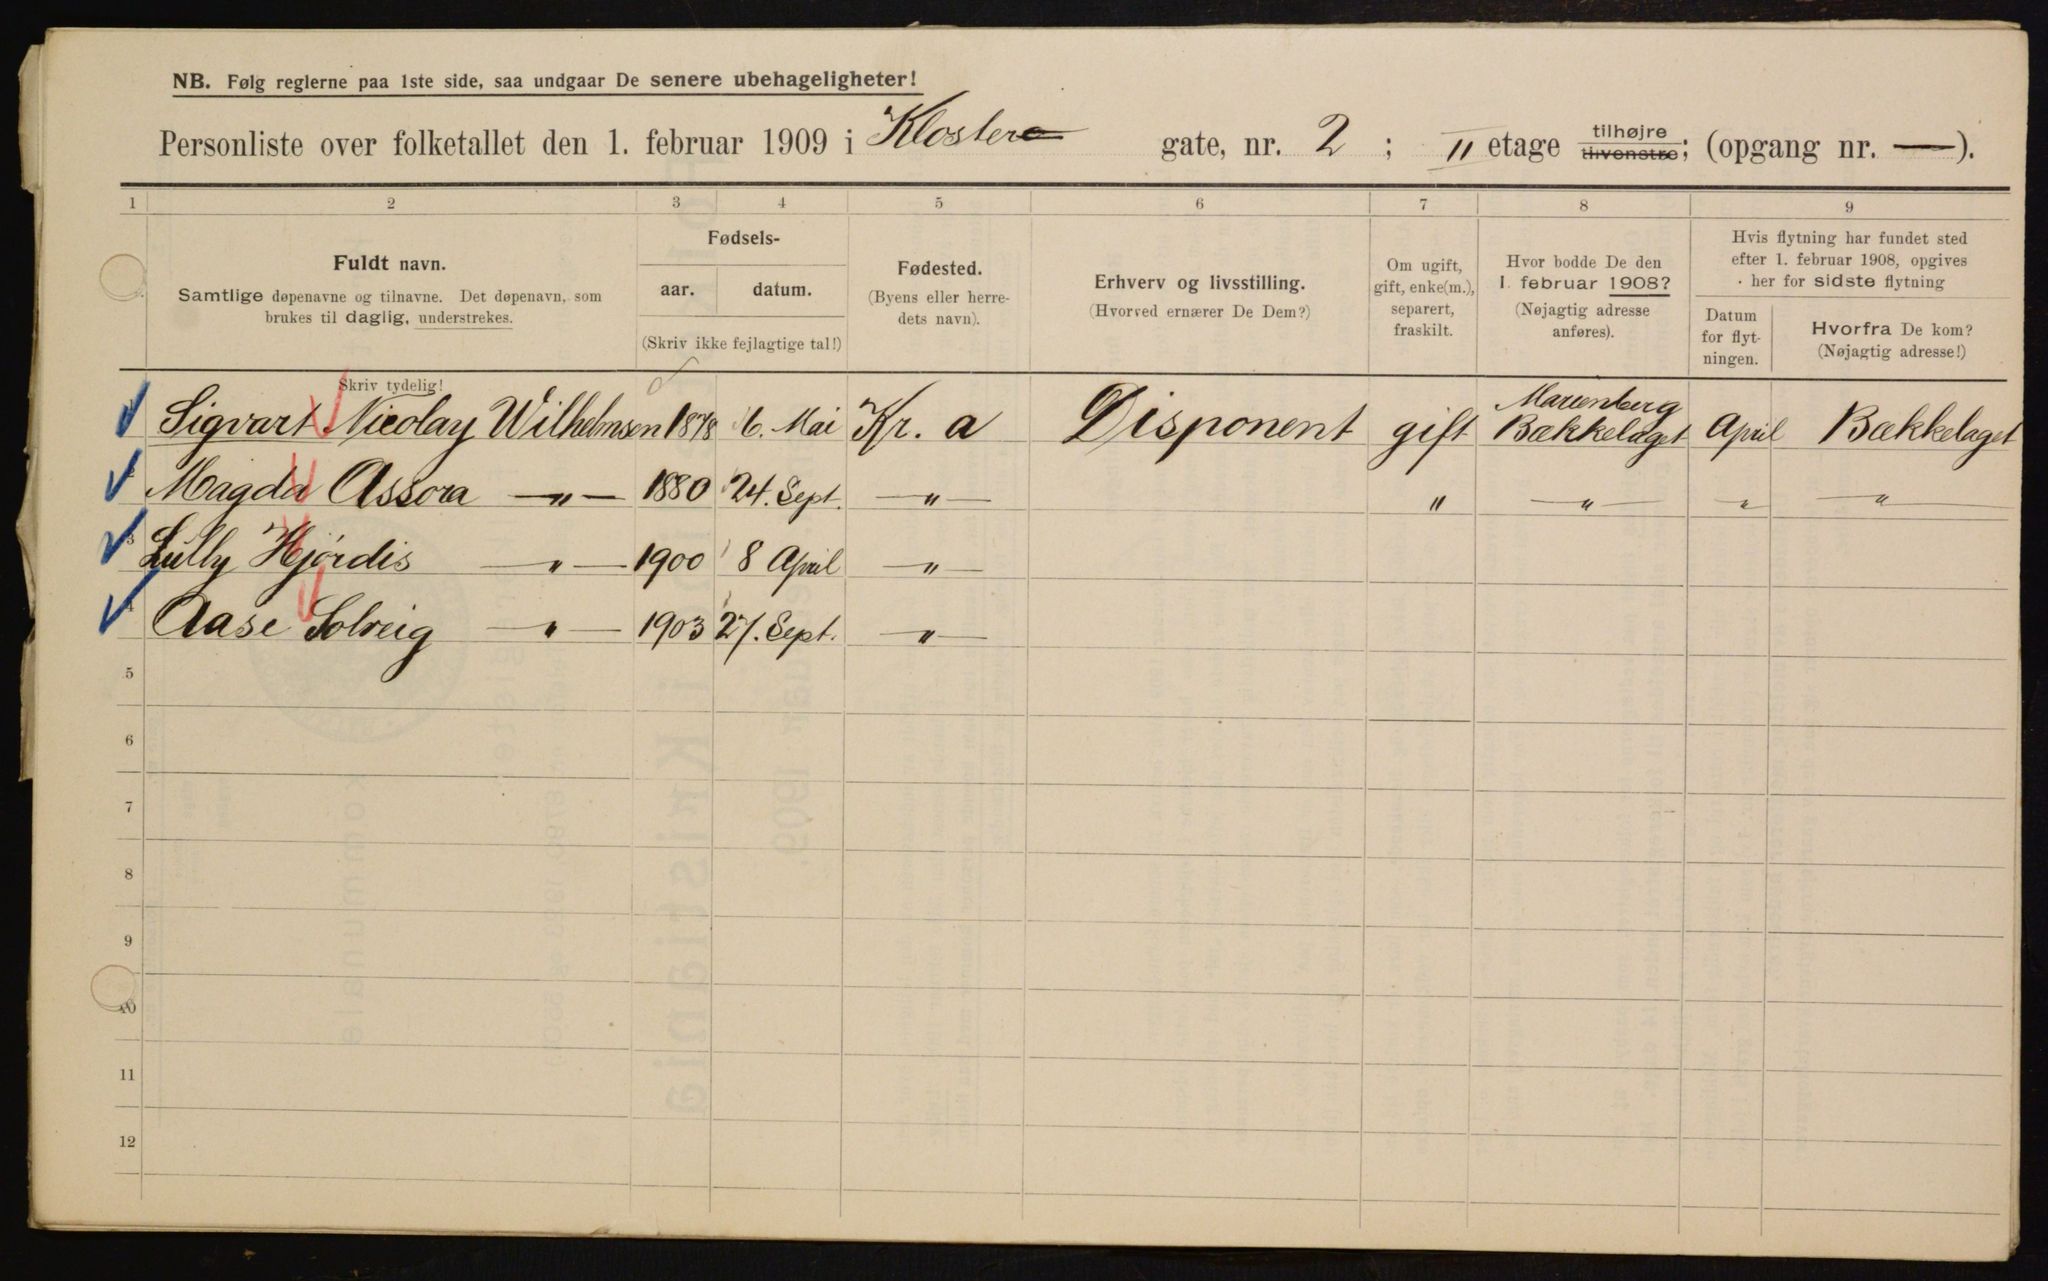 NB. Følg reglerne paa 1ste side, saa undgaar De senere ubehageligheter!
Personliste over folketallet den 1. februar 1909 i Kloster gate, nr. 2 ; II etage tilhøjre tilvenstre; (opgang nr. —).
1 2 3 4 5 6 7 8 9
Fuldt navn.
Samtlige døpenavne og tilnavne. Det døpenavn, som
brukes til daglig, understrekes.
Skriv tydelig!
Fødsels-
aar. datum.
(Skriv ikke fejlagtige tal!)
Fødested.
(Byens eller herre-
dets navn).
Erhverv og livsstilling.
(Hvorved ernærer De Dem?)
Om ugift,
gift, enke(m.),
separert,
fraskilt.
Hvor bodde De den
1. februar 1908?
(Nøjagtig adresse
anføres).
Hvis flytning har fundet sted
efter 1. februar 1908, opgives
her for sidste flytning
Datum
for flyt-
ningen.
Hvorfra De kom?
(Nøjagtig adresse!)
Sigvart Nicolay Wilhelmsen 1878 6. Mai Kr. a Disponent gift Marienberg Bækkelaget April Bækkelaget
Magda Assora —"— 1880 24. Sept. —"— " —"— " —"—
3 Lully Hjørdis —"— 1900 8 April —"—
4 Aase Solveig —"— 1903 27. Sept. —"—
5
6
7
8
9
10
11
12